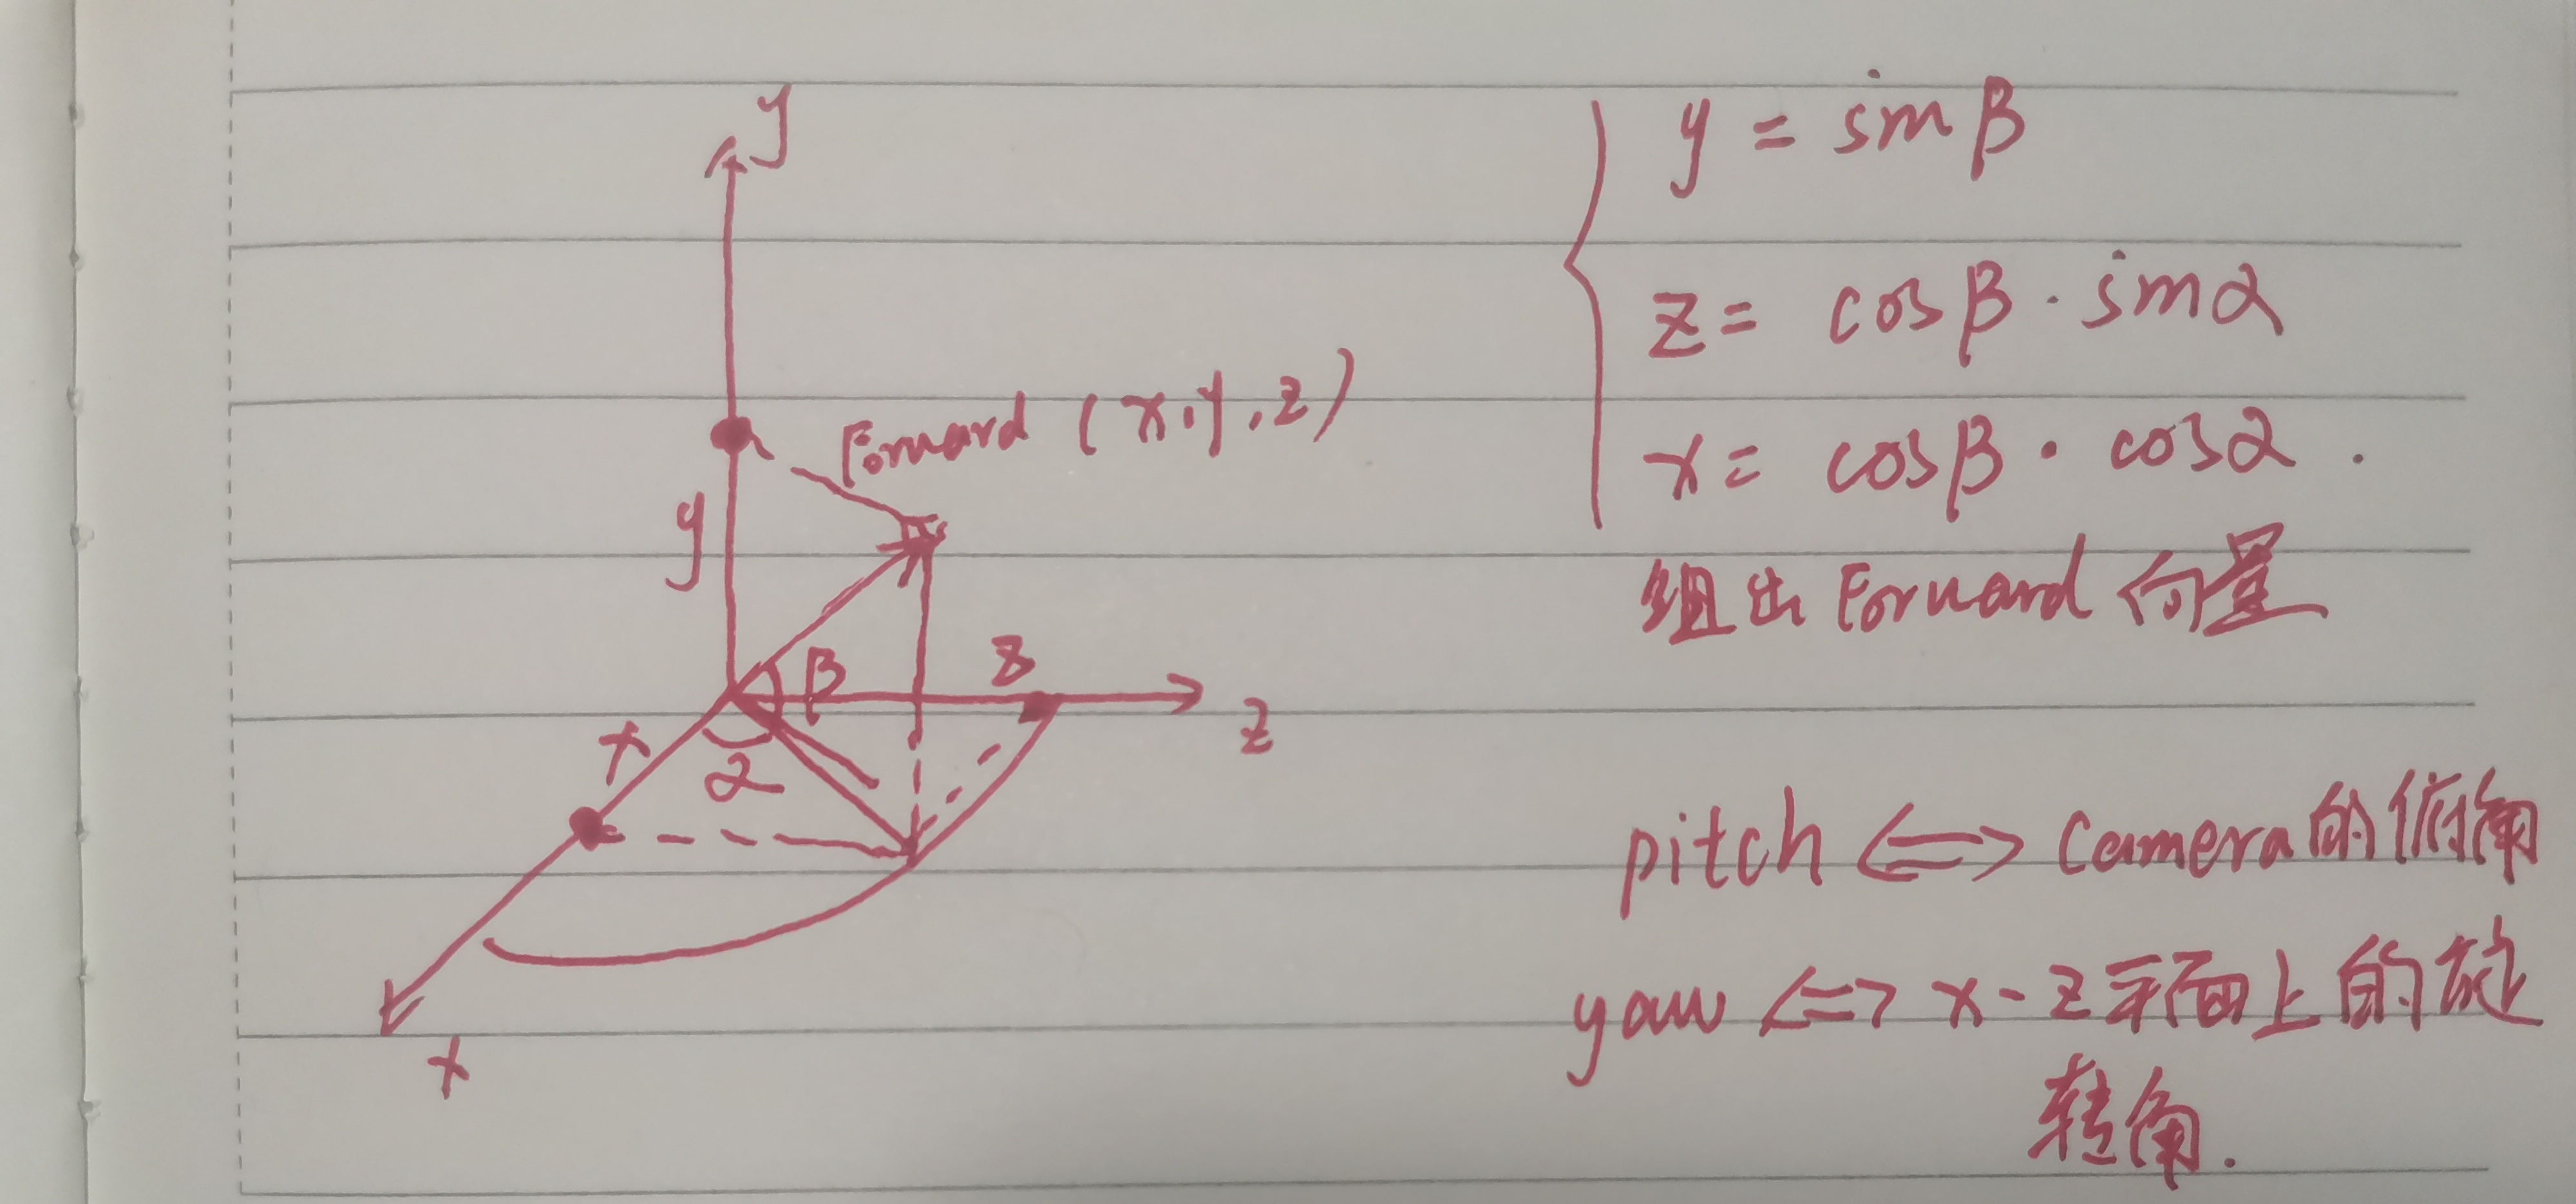 y
Forward (x,y,z)
y
β
z
z
x
α
x
y = sinβ
z = cosβ · sinα
x = cosβ · cosα .
组出 Forward 向量
pitch <=> Camera的俯角
yaw <=> x-z平面上的旋
转角.